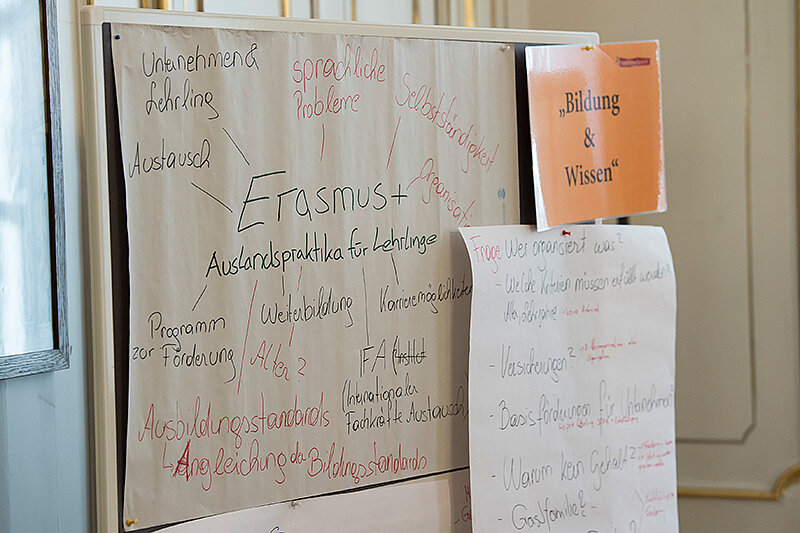 Unternehmen &
Lehrling
Austausch
sprachliche
Probleme
Selbstständigkeit
Organisat
Erasmus+
Auslandspraktika für Lehrlinge
Programm
zur Förderung
Alter?
Weiterbildung
Karrieremöglichkeiten
IFA (Institut
(Internationaler
Fachkräfte Austausch)
Ausbildungsstandards
↳ Angleichung der Bildungsstandards
„Bildung
&
Wissen“
Frage Wer organisiert was?
- Welche Kriterien müssen erfüllt werden?
- Versicherungen?
- Basisförderungen für Unternehmen?
- Warum kein Gehalt?
- Gastfamilie?